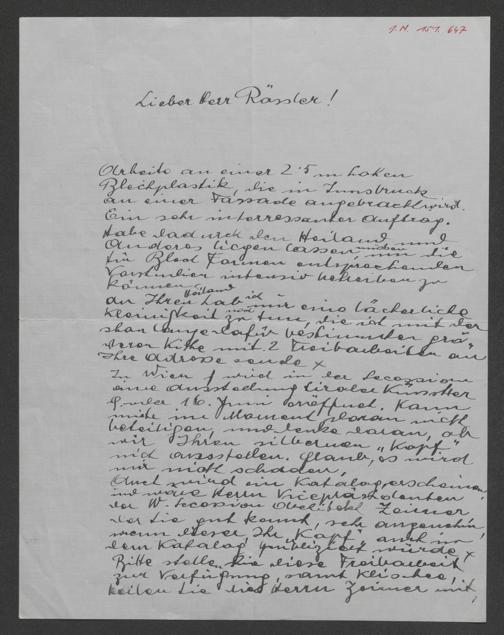 I.N. 151.647
Lieber Herr Rössler!
Arbeite an einer 2·5 m hohen
Blechplastik, die in Innsbruck
an einer Fassade angebracht wird.
Ein sehr interressanter Auftrag.
Habe dadurch den Heiland und
Anderes liegen lassen müssen, um die
für Blech Formen entsprechenden
intensiv betreiben zu
können.
An Ihren Heiland hab ich nur eine lächerliche
Kleinigkeit zu tun, die ich mit der
schon längst dafür bestimmten
Kiste mit 2 Treibarbeiten an
Ihre Adresse sende x
In Wien wird in der Secession
eine Ausstellung tiroler Künstler
16. Juni eröffnet. Kann
mich im Moment daran nicht
beteiligen, und denke daran, ob
wir Ihren silbernen „Kopf"
nicht ausstellen. Glaub, es wird
mir nicht schaden,
Auch wird ein Katalog erscheinen,
und wäre Herrn Vicepräsidenten
der W. Secession Zeimer
der Sie gut kennt, sehr angenehm,
wenn dieser Ihr „Kopf" auch in
dem Katalog publiziert würde, x
Bitte stellen Sie diese Treibarbeit
zur Verfügung, samt Klischee,
teilen Sie dies Herrn Zeimer mit,